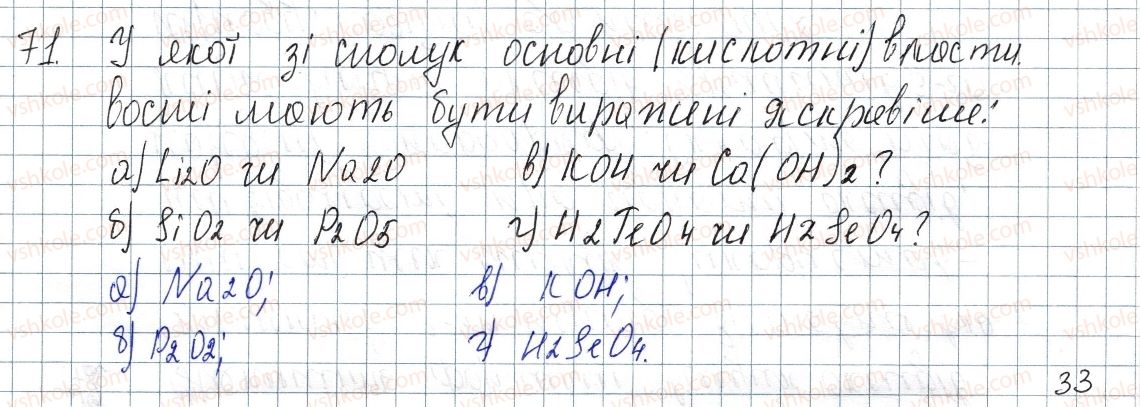 71. У якої зі сполук основні (кислотні) власти
востi мають бути виражені яскравіше:
а) Li2O чи Na2O в) KOH чи Ca(OH)2?
б) SiO2 чи P2O5 г) H2TeO4 чи H2SeO4?
а) Na2O; в) KOH;
б) P2O2; г) H2SeO4.
33